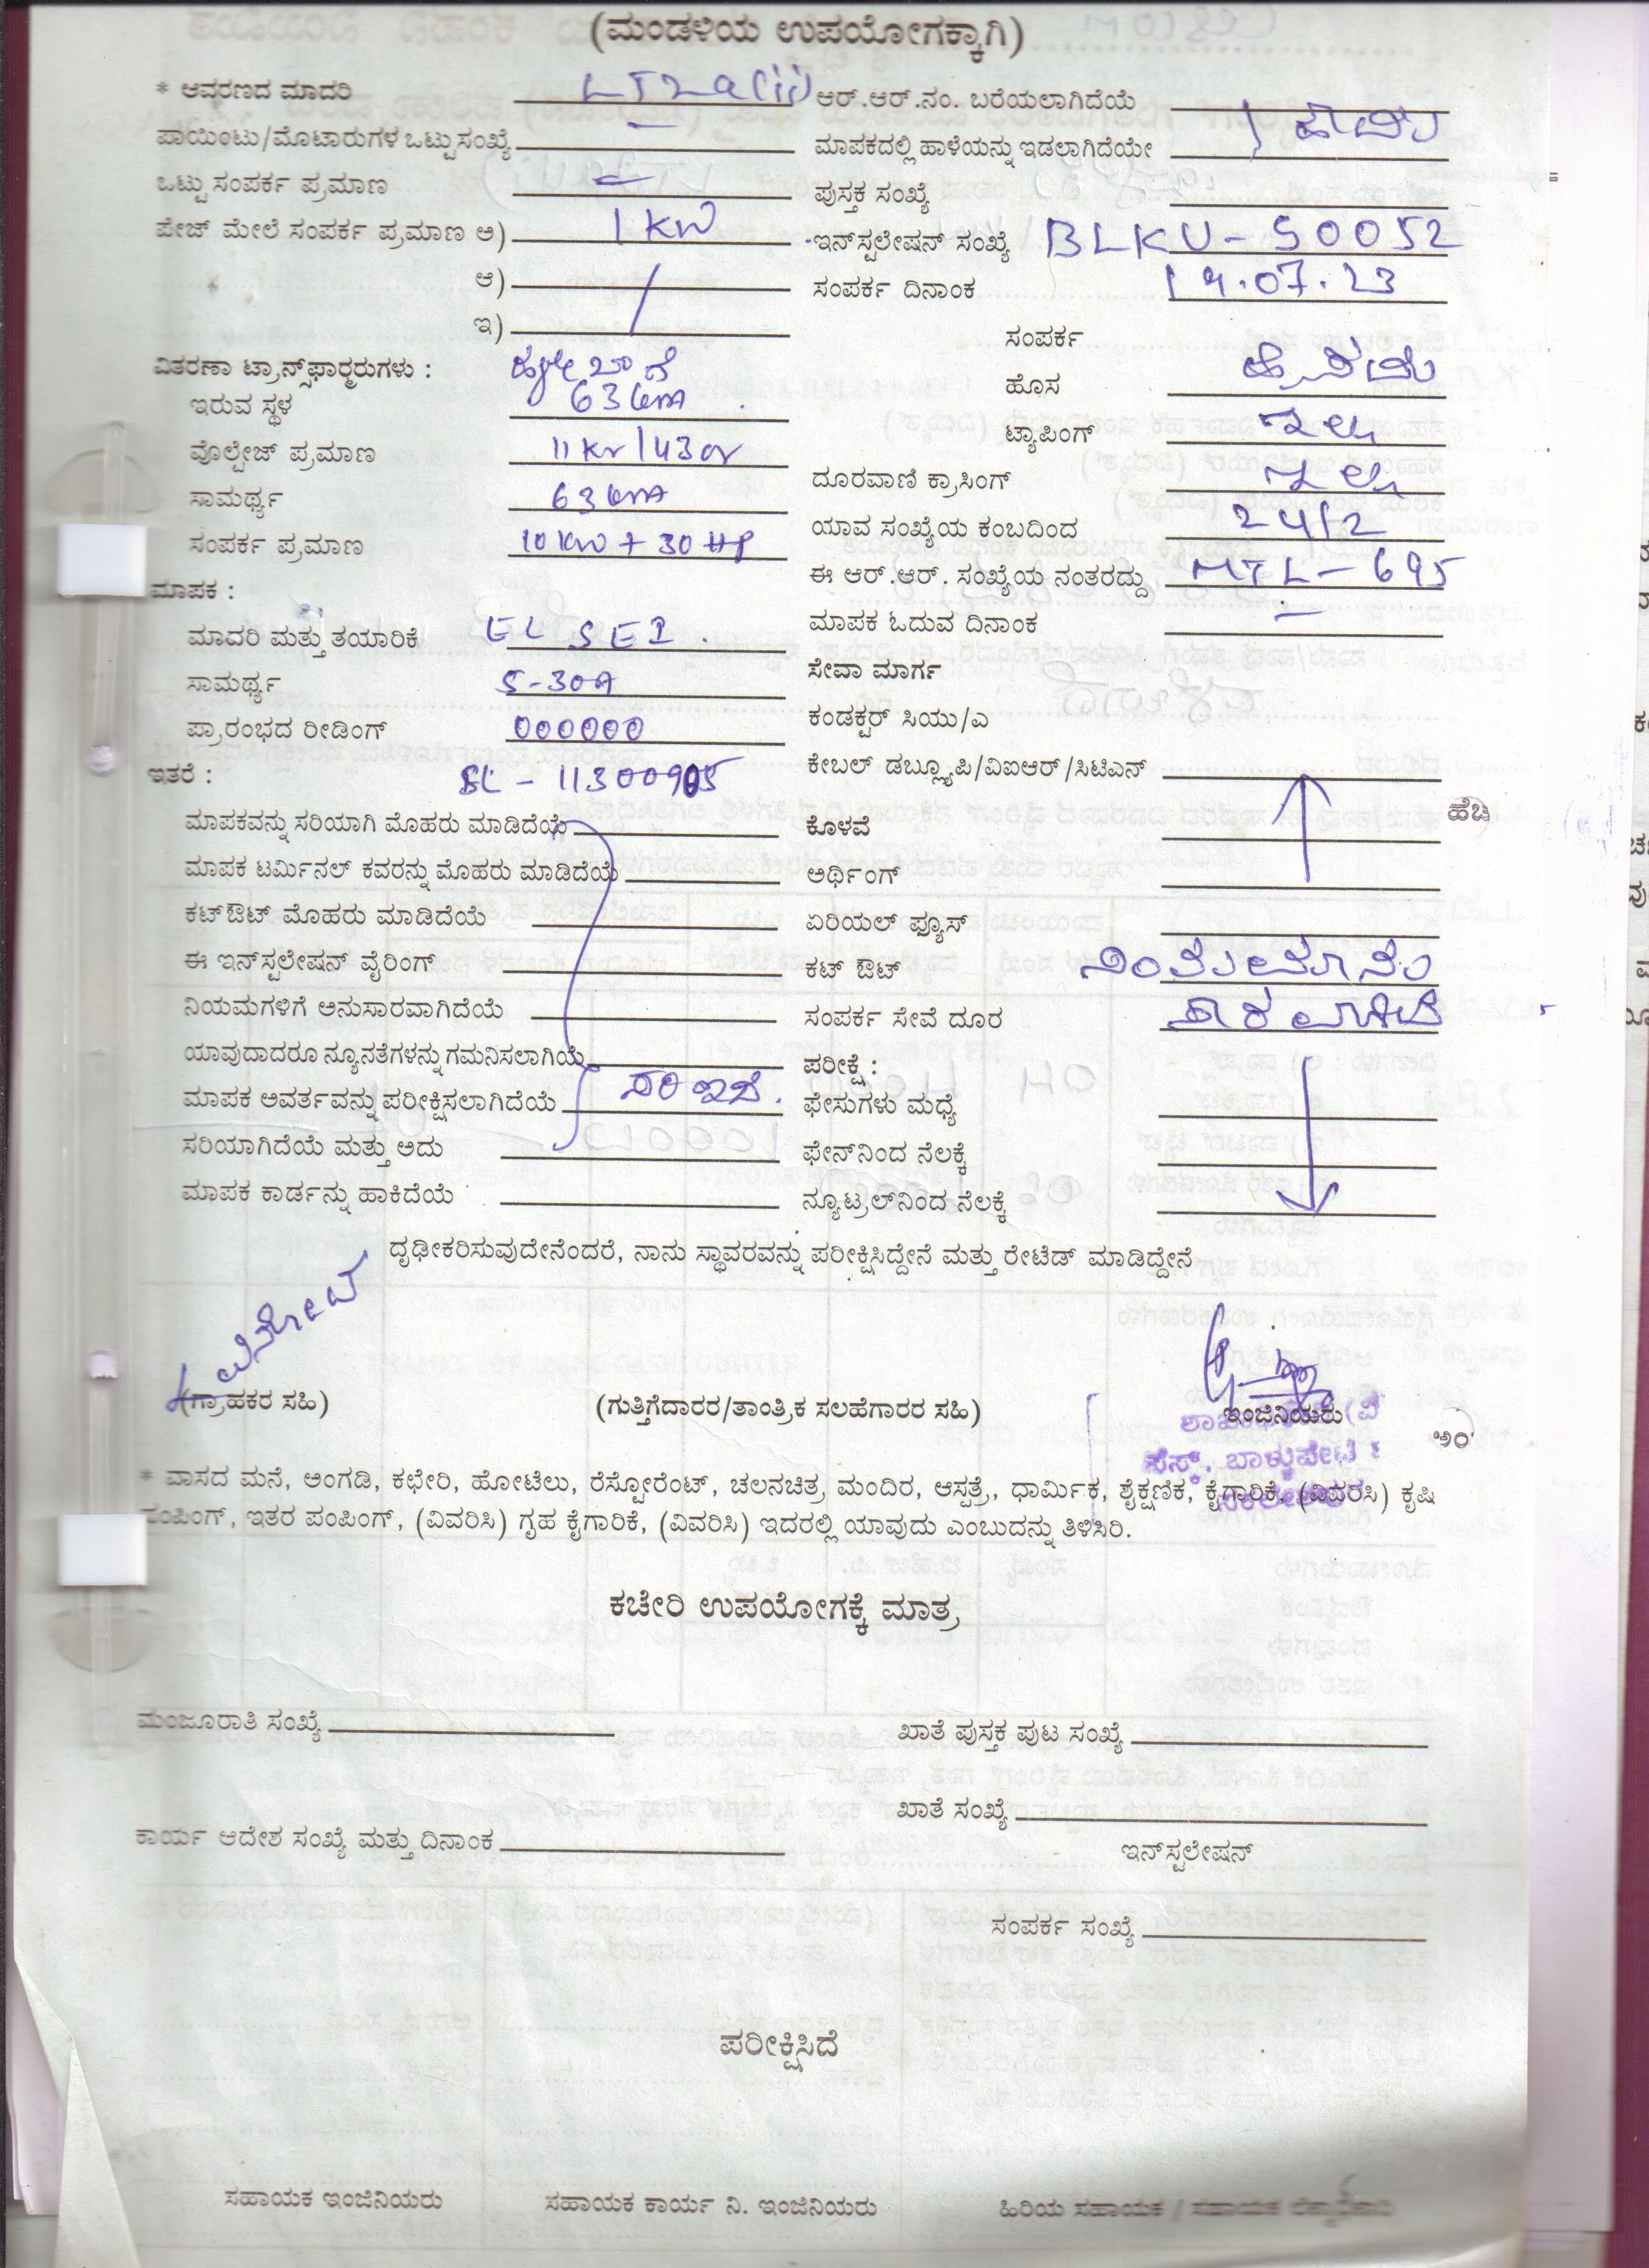 (ಮಂಡಳಿಯ ಉಪಯೋಗಕ್ಕಾಗಿ)
* ಆವರಣದ ಮಾದರಿ LT2a(ii)
ಪಾಯಿಂಟು/ಮೋಟಾರುಗಳ ಒಟ್ಟು ಸಂಖ್ಯೆ —
ಒಟ್ಟು ಸಂಪರ್ಕ ಪ್ರಮಾಣ —
ಪೇಜ್ ಮೇಲೆ ಸಂಪರ್ಕ ಪ್ರಮಾಣ ಅ) 1 KW
ಆ)
ಇ)
ವಿತರಣಾ ಟ್ರಾನ್ಸ್‌ಫಾರ್ಮರುಗಳು :
ಇರುವ ಸ್ಥಳ 63
ವೊಲ್ಟೇಜ್ ಪ್ರಮಾಣ 11KV/430V
ಸಾಮರ್ಥ್ಯ 63
ಸಂಪರ್ಕ ಪ್ರಮಾಣ 10KW + 30HP
ಮಾಪಕ :
ಮಾದರಿ ಮತ್ತು ತಯಾರಿಕೆ
ಸಾಮರ್ಥ್ಯ 5-30A
ಪ್ರಾರಂಭದ ರೀಡಿಂಗ್ 000000
ಇತರೆ : SL - 11300905
ಮಾಪಕವನ್ನು ಸರಿಯಾಗಿ ಮೊಹರು ಮಾಡಿದೆಯೆ
ಮಾಪಕ ಟರ್ಮಿನಲ್ ಕವರನ್ನು ಮೊಹರು ಮಾಡಿದೆಯೆ
ಕಟ್‌ಔಟ್ ಮೊಹರು ಮಾಡಿದೆಯೆ
ಈ ಇನ್‌ಸ್ಟಲೇಷನ್ ವೈರಿಂಗ್
ನಿಯಮಗಳಿಗೆ ಅನುಸಾರವಾಗಿದೆಯೆ
ಯಾವುದಾದರೂ ನ್ಯೂನತೆಗಳನ್ನು ಗಮನಿಸಲಾಗಿಯೆ
ಮಾಪಕ ಅವರ್ತವನ್ನು ಪರೀಕ್ಷಿಸಲಾಗಿದೆಯೆ ಸರಿ ಇದೆ.
ಸರಿಯಾಗಿದೆಯೆ ಮತ್ತು ಅದು
ಮಾಪಕ ಕಾರ್ಡನ್ನು ಹಾಕಿದೆಯೆ
ಆರ್.ಆರ್.ನಂ. ಬರೆಯಲಾಗಿದೆಯೆ
ಮಾಪಕದಲ್ಲಿ ಹಾಳೆಯನ್ನು ಇಡಲಾಗಿದೆಯೇ ಹೌದು
ಪುಸ್ತಕ ಸಂಖ್ಯೆ
ಇನ್‌ಸ್ಟಲೇಷನ್ ಸಂಖ್ಯೆ BLKU - 50052
ಸಂಪರ್ಕ ದಿನಾಂಕ 19.07.23
ಸಂಪರ್ಕ
ಹೊಸ
ಟ್ಯಾಪಿಂಗ್ ಇಲ್ಲ
ದೂರವಾಣಿ ಕ್ರಾಸಿಂಗ್ ಇಲ್ಲ
ಯಾವ ಸಂಖ್ಯೆಯ ಕಂಬದಿಂದ 24/2
ಈ ಆರ್.ಆರ್. ಸಂಖ್ಯೆಯ ನಂತರದ್ದು MTL - 695
ಮಾಪಕ ಓದುವ ದಿನಾಂಕ —
ಸೇವಾ ಮಾರ್ಗ
ಕಂಡಕ್ಟರ್ ಸಿಯು/ಎ
ಕೇಬಲ್ ಡಬ್ಲ್ಯೂಪಿ/ವಿಐಆರ್/ಸಿಟಿಎನ್
ಕೊಳವೆ
ಅರ್ಥಿಂಗ್
ಏರಿಯಲ್ ಫ್ಯೂಸ್
ಕಟ್ ಔಟ್
ಸಂಪರ್ಕ ಸೇವೆ ದೂರ
ಪರೀಕ್ಷೆ :
ಫೇಸುಗಳು ಮಧ್ಯೆ
ಫೇನ್‌ನಿಂದ ನೆಲಕ್ಕೆ
ನ್ಯೂಟ್ರಲ್‌ನಿಂದ ನೆಲಕ್ಕೆ
ಹೆಚಿ
ದೃಢೀಕರಿಸುವುದೇನೆಂದರೆ, ನಾನು ಸ್ಥಾವರವನ್ನು ಪರೀಕ್ಷಿಸಿದ್ದೇನೆ ಮತ್ತು ರೇಟೆಡ್ ಮಾಡಿದ್ದೇನೆ
(ಗ್ರಾಹಕರ ಸಹಿ) (ಗುತ್ತಿಗೆದಾರರ/ತಾಂತ್ರಿಕ ಸಲಹೆಗಾರರ ಸಹಿ) ಇಂಜಿನಿಯರು
* ವಾಸದ ಮನೆ, ಅಂಗಡಿ, ಕಛೇರಿ, ಹೋಟೆಲು, ರೆಸ್ಟೋರೆಂಟ್, ಚಲನಚಿತ್ರ ಮಂದಿರ, ಆಸ್ಪತ್ರೆ, ಧಾರ್ಮಿಕ, ಶೈಕ್ಷಣಿಕ, ಕೈಗಾರಿಕೆ, (ವಿವರಿಸಿ) ಕೃಷಿ
ಪಂಪಿಂಗ್, ಇತರ ಪಂಪಿಂಗ್, (ವಿವರಿಸಿ) ಗೃಹ ಕೈಗಾರಿಕೆ, (ವಿವರಿಸಿ) ಇದರಲ್ಲಿ ಯಾವುದು ಎಂಬುದನ್ನು ತಿಳಿಸಿರಿ.
ಕಚೇರಿ ಉಪಯೋಗಕ್ಕೆ ಮಾತ್ರ
ಮಂಜೂರಾತಿ ಸಂಖ್ಯೆ ಖಾತೆ ಪುಸ್ತಕ ಪುಟ ಸಂಖ್ಯೆ
ಖಾತೆ ಸಂಖ್ಯೆ
ಕಾರ್ಯ ಆದೇಶ ಸಂಖ್ಯೆ ಮತ್ತು ದಿನಾಂಕ
ಇನ್‌ಸ್ಟಲೇಷನ್
ಸಂಪರ್ಕ ಸಂಖ್ಯೆ
ಪರೀಕ್ಷಿಸಿದೆ
ಸಹಾಯಕ ಇಂಜಿನಿಯರು ಸಹಾಯಕ ಕಾರ್ಯ ನಿ. ಇಂಜಿನಿಯರು ಹಿರಿಯ ಸಹಾಯಕ / ಸಹಾಯಕ